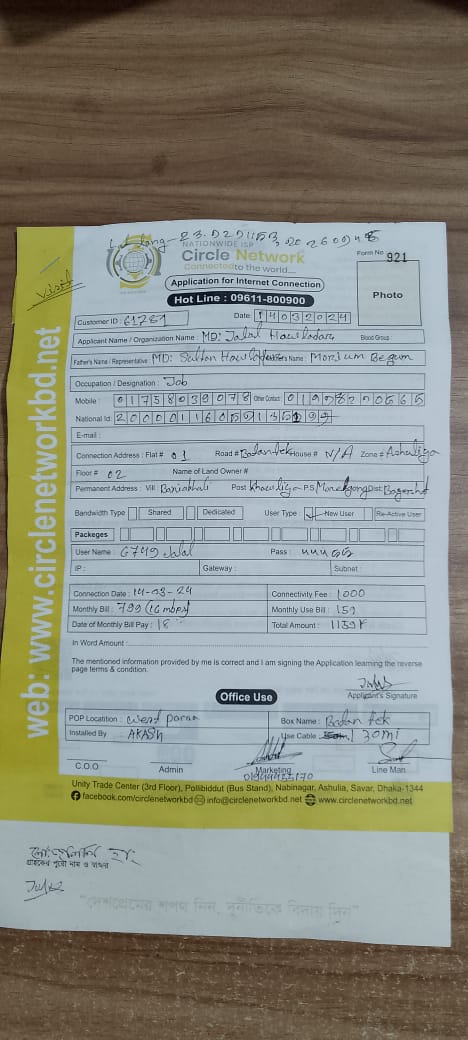 NATIONWIDE ISP
Circle Network
Connected to the world....
Form No 921
Application for Internet Connection
Hot Line : 09611-800900
Photo
Customer ID : 61781 Date: 14032024
Applicant Name / Organization Name : MD: Jalal Hawladar Blood Group
Father's Name / Representative MD: Sultan Name : Morium Begum
Occupation / Designation : Job
Mobile : 01758039078 Other Contact :
National Id:
E-mail :
Connection Address : Flat # 01 Road # Badantek House # N/A Zone # Ashuliya
Floor # 02 Name of Land Owner #
Permanent Address : Vill Post P.S Dist
Bandwidth Type Shared Dedicated User Type New User Re-Active User
Packeges
User Name : Jalal Pass :
IP : Gateway : Subnet :
Connection Date : 14-03-24 Connectivity Fee : 1000
Monthly Bill : 799 (16 mbps) Monthly Use Bill : 159
Date of Monthly Bill Pay : 18 Total Amount : 1159
In Word Amount :
The mentioned information provided by me is correct and I am signing the Application learning the reverse
page terms & condition.
Applicant's Signature
Office Use
POP Locatition : West Para Box Name : Badan tek
Installed By AKASH Use Cable 130mi
C.O.O Admin Marketing Line Man
Unity Trade Center (3rd Floor), Pollibiddut (Bus Stand), Nabinagar, Ashulia, Savar, Dhaka-1344
facebook.com/circlenetworkbd info@circlenetworkbd.net www.circlenetworkbd.net
web: www.circlenetworkbd.net
গ্রাহকের পুরো নাম ও স্বাক্ষর
"দেশপ্রেমের শপথ নিন, দুর্নীতিকে বিদায় দিন"